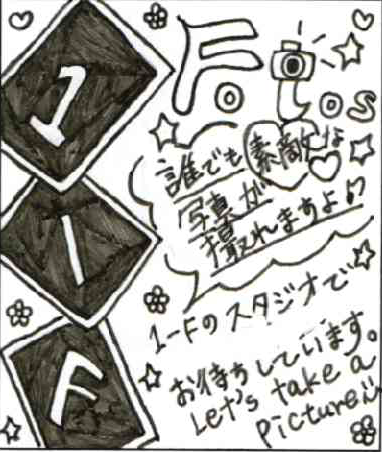 1
|
F
Fotos
誰でも素敵な
写真が
撮れますよ♪
1-Fのスタジオで
お待ちしています。
Let's take a
picture